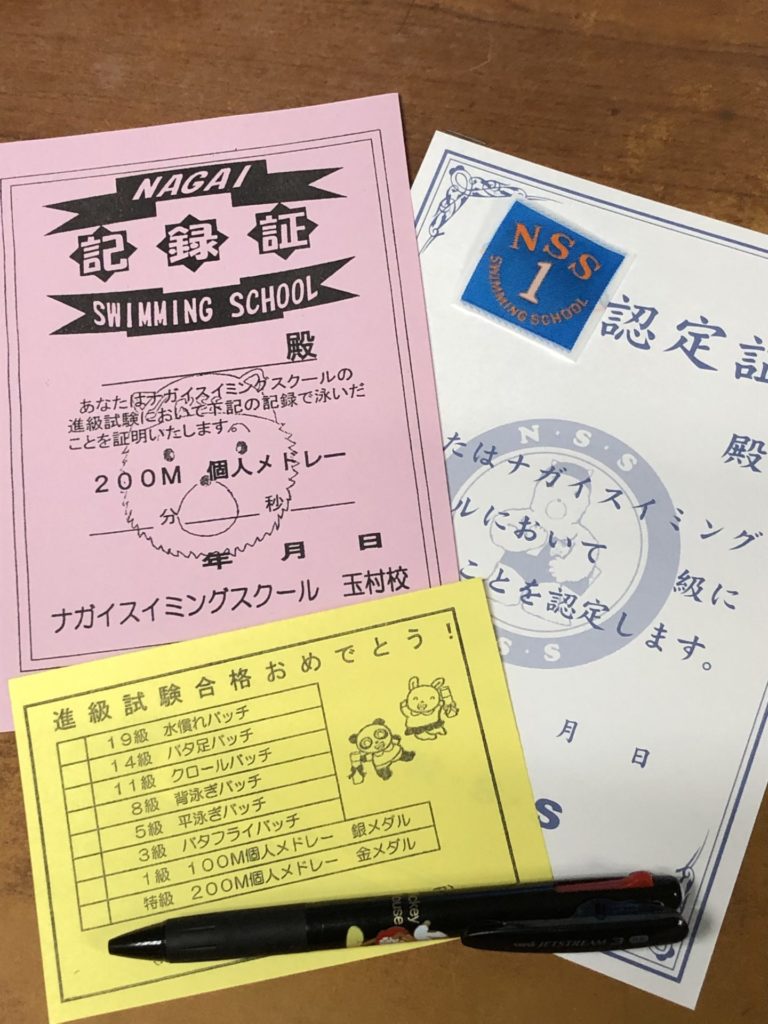 NAGAI
記録証
SWIMMING SCHOOL
殿
あなたはナガイスイミングスクールの
進級試験において下記の記録で泳いだ
ことを証明いたします。
200M 個人メドレー
分 秒
年 月 日
ナガイスイミングスクール 玉村校
NSS
1
SWIMMING SCHOOL
認定証
殿
たはナガイスイミング
ルにおいて 級に
ことを認定します。
N・S・S
S・S
月 日
S
進級試験合格おめでとう!
19級 水慣れバッチ
14級 バタ足バッチ
11級 クロールバッチ
8級 背泳ぎバッチ
5級 平泳ぎバッチ
3級 バタフライバッチ
1級 100M個人メドレー 銀メダル
特級 200M個人メドレー 金メダル
ickey
ouse
uni JETSTREAM 3